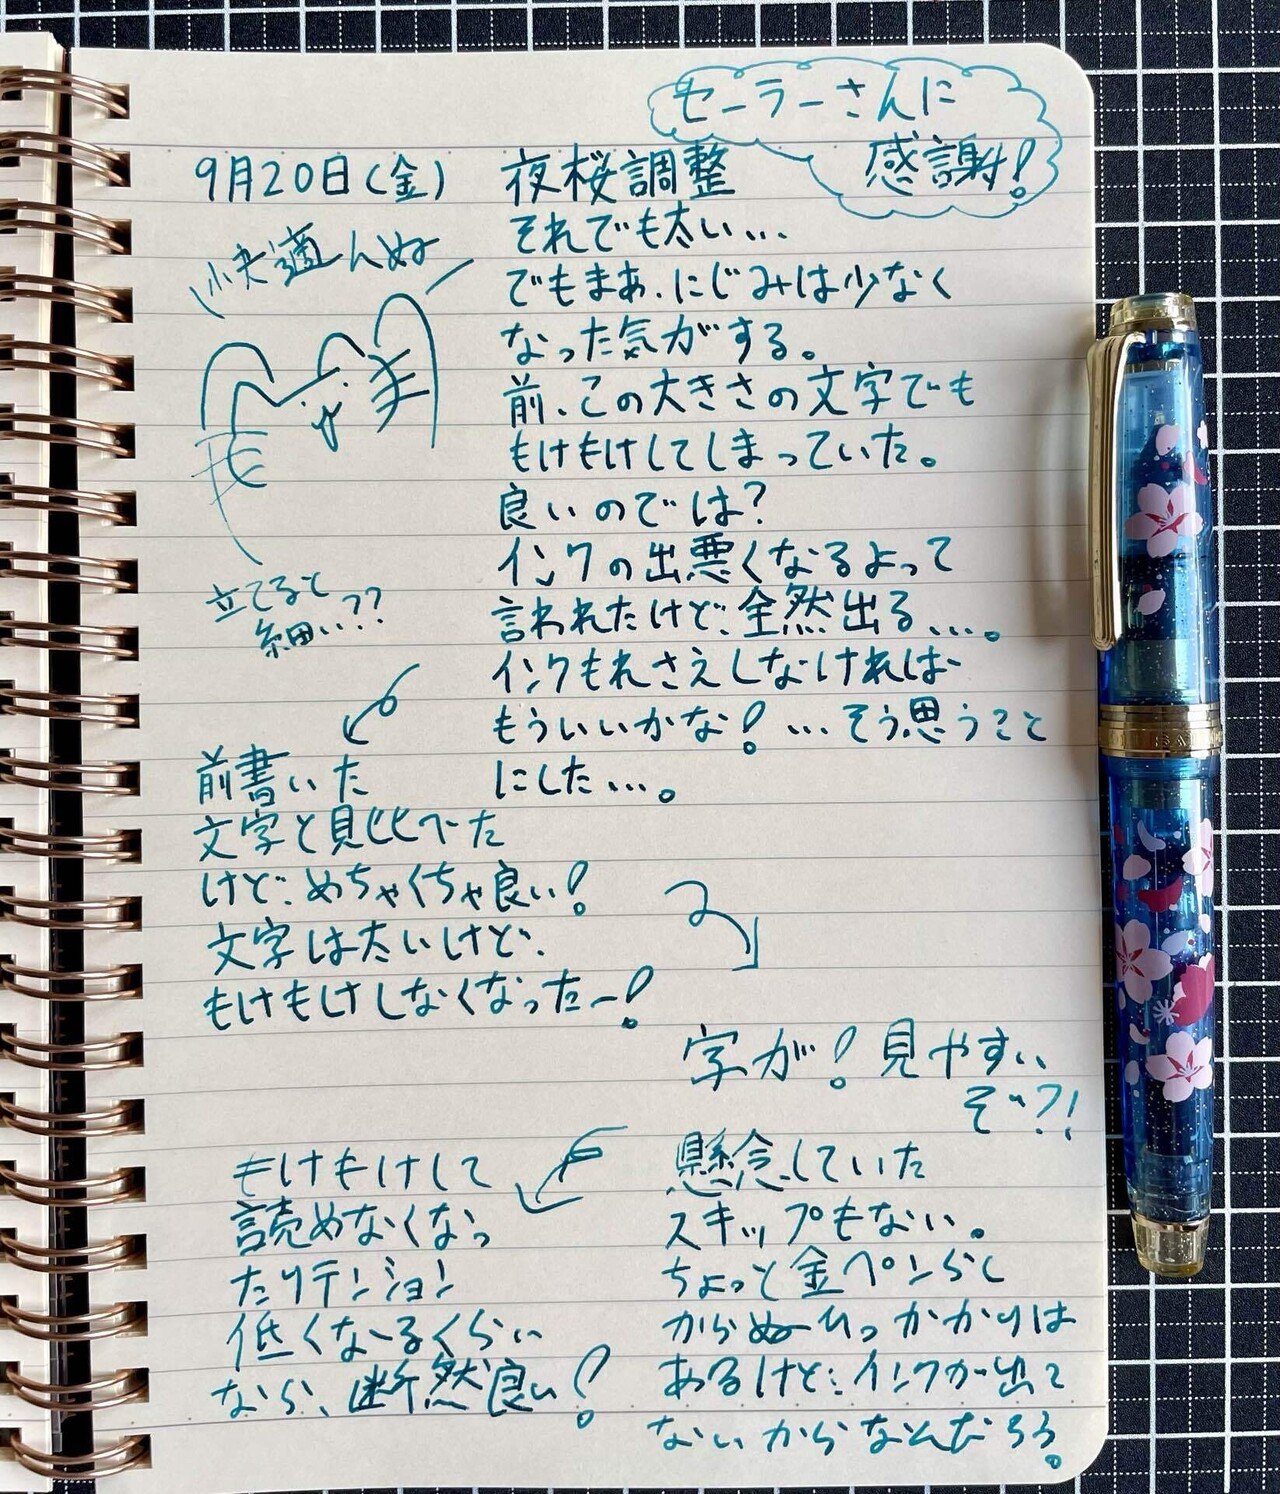 セーラーさんに
感謝!
9月20日(金)
夜桜調整
それでも太い…
でもまあ、にじみは少なく
なった気がする。
前、この大きさの文字でも
もけもけしてしまっていた。
良いのでは?
インクの出悪くなるよって
言われたけど、全然出る…。
インクもれさえしなければ
もういいかな!…そう思うこと
にした…。
快適んぬ
立てると
細い??
前書いた
文字と見比べた
けど、めちゃくちゃ良い!
文字は太いけど、
もけもけしなくなったー!
字が!見やすい
ぞ?!
懸念していた
スキップもない。
ちょっと金ペンらし
からぬひっかかりは
あるけど、インクが出て
ないからなんだろう。
もけもけして
読めなくなっ
たりテンション
低くなるくらい
なら、断然良い!